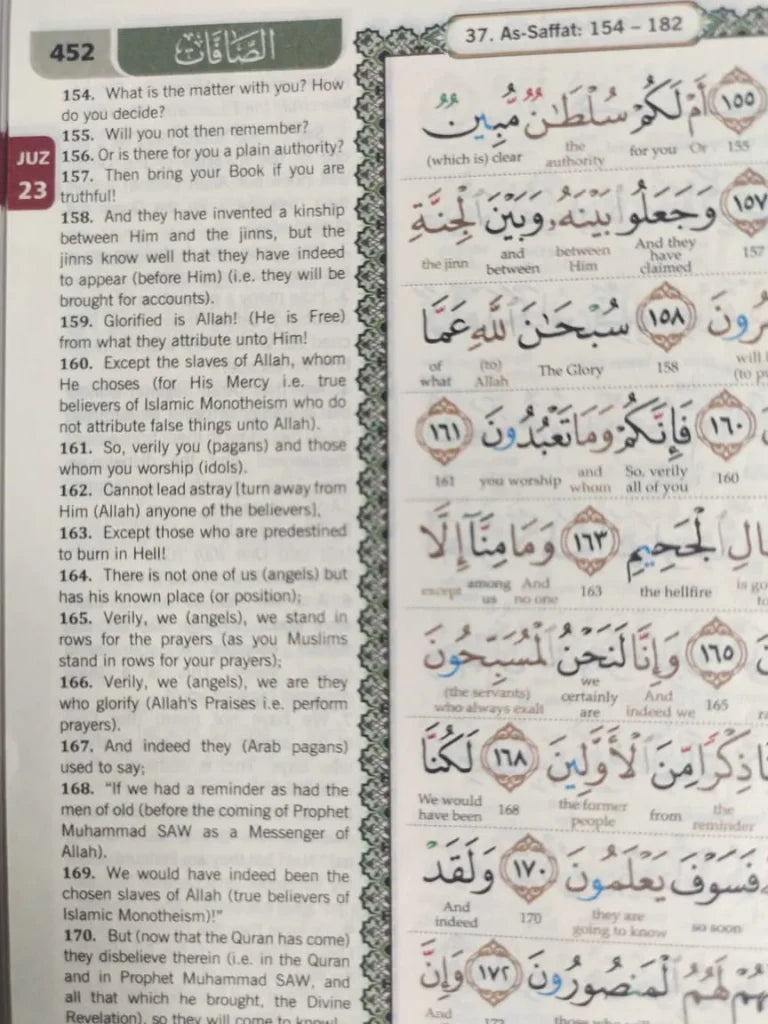 452
الصَّافَّات
37. As-Saffat: 154 – 182
JUZ
23
154. What is the matter with you? How
do you decide?
155. Will you not then remember?
156. Or is there for you a plain authority?
157. Then bring your Book if you are
truthful!
158. And they have invented a kinship
between Him and the jinns, but the
jinns know well that they have indeed
to appear (before Him) (i.e. they will be
brought for accounts).
159. Glorified is Allah! (He is Free)
from what they attribute unto Him!
160. Except the slaves of Allah, whom
He choses (for His Mercy i.e. true
believers of Islamic Monotheism who do
not attribute false things unto Allah).
161. So, verily you (pagans) and those
whom you worship (idols).
162. Cannot lead astray [turn away from
Him (Allah) anyone of the believers].
163. Except those who are predestined
to burn in Hell!
164. There is not one of us (angels) but
has his known place (or position);
165. Verily, we (angels), we stand in
rows for the prayers (as you Muslims
stand in rows for your prayers);
166. Verily, we (angels), we are they
who glorify (Allah's Praises i.e. perform
prayers).
167. And indeed they (Arab pagans)
used to say;
168. "If we had a reminder as had the
men of old (before the coming of Prophet
Muhammad SAW as a Messenger of
Allah).
169. We would have indeed been the
chosen slaves of Allah (true believers of
Islamic Monotheism)!"
170. But (now that the Quran has come)
they disbelieve therein (i.e. in the Quran
and in Prophet Muhammad SAW, and
all that which he brought, the Divine
Revelation), so they will come to know!
١٥٥ أَمْ لَكُمْ سُلْطَـٰنٌ مُّبِينٌ
(which is) clear the authority for you Or 155
١٥٧ وَجَعَلُوا بَيْنَهُۥ وَبَيْنَ الْجِنَّةِ
the jinn and between between Him And they have claimed 157
١٥٨ سُبْحَـٰنَ اللَّهِ عَمَّا
of what (to) Allah The Glory 158
١٦٠ فَإِنَّكُمْ وَمَا تَعْبُدُونَ ١٦١
161 you worship and whom So, verily all of you 160
الْجَحِيمِ ١٦٣ وَمَا مِنَّآ إِلَّا
except among us And no one 163 the hellfire
١٦٥ وَإِنَّا لَنَحْنُ الْمُسَبِّحُونَ
(the servants) who always exalt we certainly are And indeed we 165
ذِكْرًا مِّنَ الْأَوَّلِينَ ١٦٨ لَكُنَّا
We would have been 168 the former people from the reminder
فَسَوْفَ يَعْلَمُونَ ١٧٠ وَلَقَدْ
And indeed 170 they are going to know so soon
لَهُمُ الْمَنصُورُونَ ١٧٢ وَإِنَّ
And 172